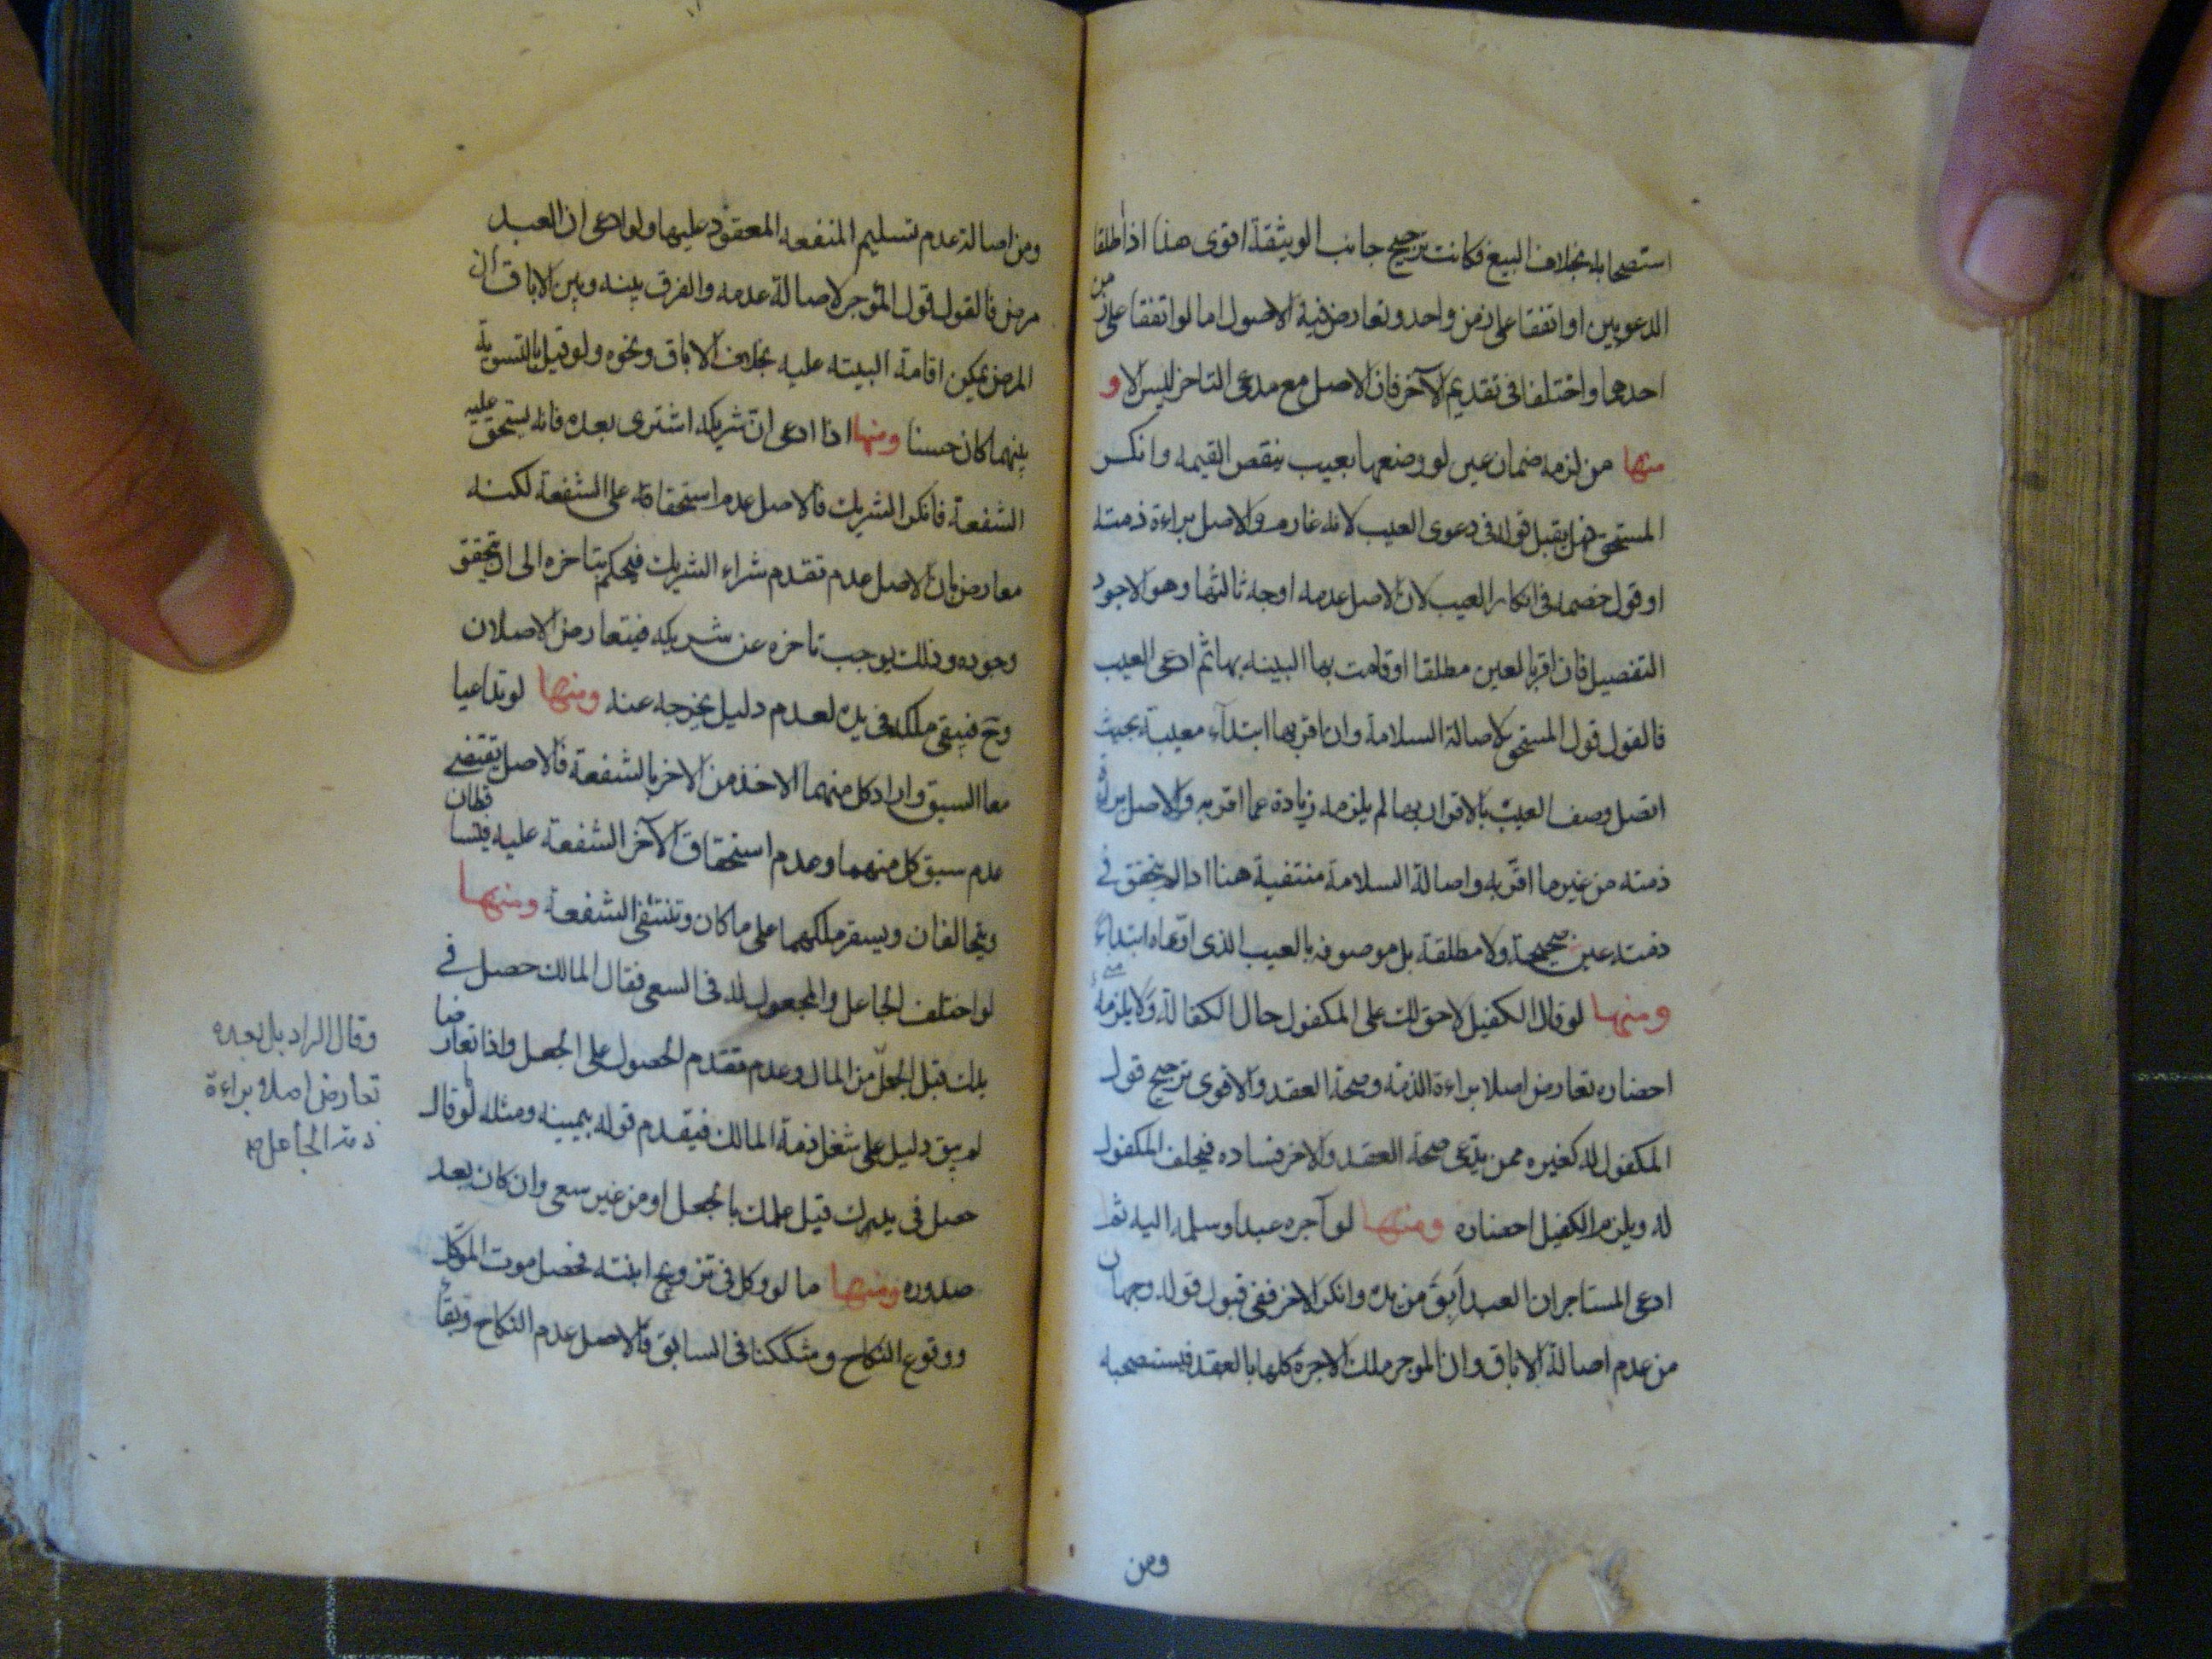 استصحابه بخلاف البيع فكانت ترجيح جانب الوثيقة اقوى هذا اذا اطلقا
الدعويين او اتفقا على زمن واحد وتعارض فيه الاصول اما لو اتفقا على زمن
احدهما واختلفا في تقديم الآخر فان الاصل مع مدعى التاخر ليس الا و
منها من لزمه ضمان عين لو وضعها بعيب ينقص القيمه وانكر
المستحق فهل يقبل قوله في دعوى العيب لانه غارم والاصل براءة ذمته
او قول خصمه في انكار العيب لان الاصل عدمه اوجه ثالثها وهو الاجود
التفصيل فان اقر بالعين مطلقا او قامت بها البينه بها ثم ادعى العيب
فالقول قول المستحق لاصالة السلامة وان اقر بها ابتدآء معيبة بحيث
اتصل وصف العيب بالاقرار بها لم يلزمه زيادة عما اقر به والاصل براءة
ذمته من غير ما اقر به واصالة السلامة منتفية هنا اذا لم يتحقق في
ذمته عين صحيحة ولا مطلقة بل موصوفه بالعيب الذى ادعاه ابتداء
ومنها لو قال الكفيل لا حق لك على المكفول حال الكفالة ولا يلزمنى
احضاره تعارض اصلا براءة الذمة وصحة العقد والاقوى ترجيح قول
المكفول له كغيره ممن يدعى صحة العقد والاخر فساده فيحلف المكفول
له ويلزم الكفيل احضاره ومنها لو آجره عبدا وسلمه اليه ثم
ادعى المستاجر ان العبد ابق من يده وانكر الاخر ففى قبول قوله وجهان
من عدم اصالة الاباق وان الموجر ملك الاجرة كلها بالعقد فيستصحبه
ومن
ومن اصالة عدم تسليم المنفعه المعقود عليها ولو ادعى ان العبد
مرض فالقول قول المؤجر لاصالة عدمه والفرق بينه وبين الاباق ان
المرض يمكن اقامة البينه عليه بخلاف الاباق ونحوه ولو قيل بالتسوية
بينهما كان حسنا ومنها اذا ادعى ان شريكه اشترى بعده فانه يستحق عليه
الشفعة فانكر الشريك فالاصل عدم استحقاقه على الشفعة لكنه
معارض بان الاصل عدم تقدم شراء الشريك فيحكم بتاخره الى ان يتحقق
وجوده وذلك يوجب تاخره عن شريكه فيتعارض الاصلان
وح فيبقى ملكه في يده لعدم دليل يخرجه عنه ومنها لو تداعيا
معا السبق واراد كل منهما الاخذ من الاخر بالشفعة فالاصل يقتضى
عدم سبق كل منهما وعدم استحقاق الآخر الشفعة عليه فيتساقطان
ويتحالفان ويستقر ملكهما على ما كان وتنتفى الشفعة ومنها
لو اختلف الجاعل والمجعول له في السعى فقال المالك حصل في
يدك قبل الجعل من المال وعدم تقدم الحصول على الجعل واذا تعارضا
لم يبق دليل على شغل ذمة المالك فيقدم قوله بيمينه ومثله لو قال
حصل في يدك قبل علمك بالجعل او من غير سعى وان كان بعد
صدوره ومنها ما لو وكل في تزويج ابنته فحصل موت الموكل
ووقوع النكاح وشككنا في السابق فالاصل عدم النكاح وبقاء
وقال الراد بل بعده
تعارض اصلا براءة
ذمة الجاعل